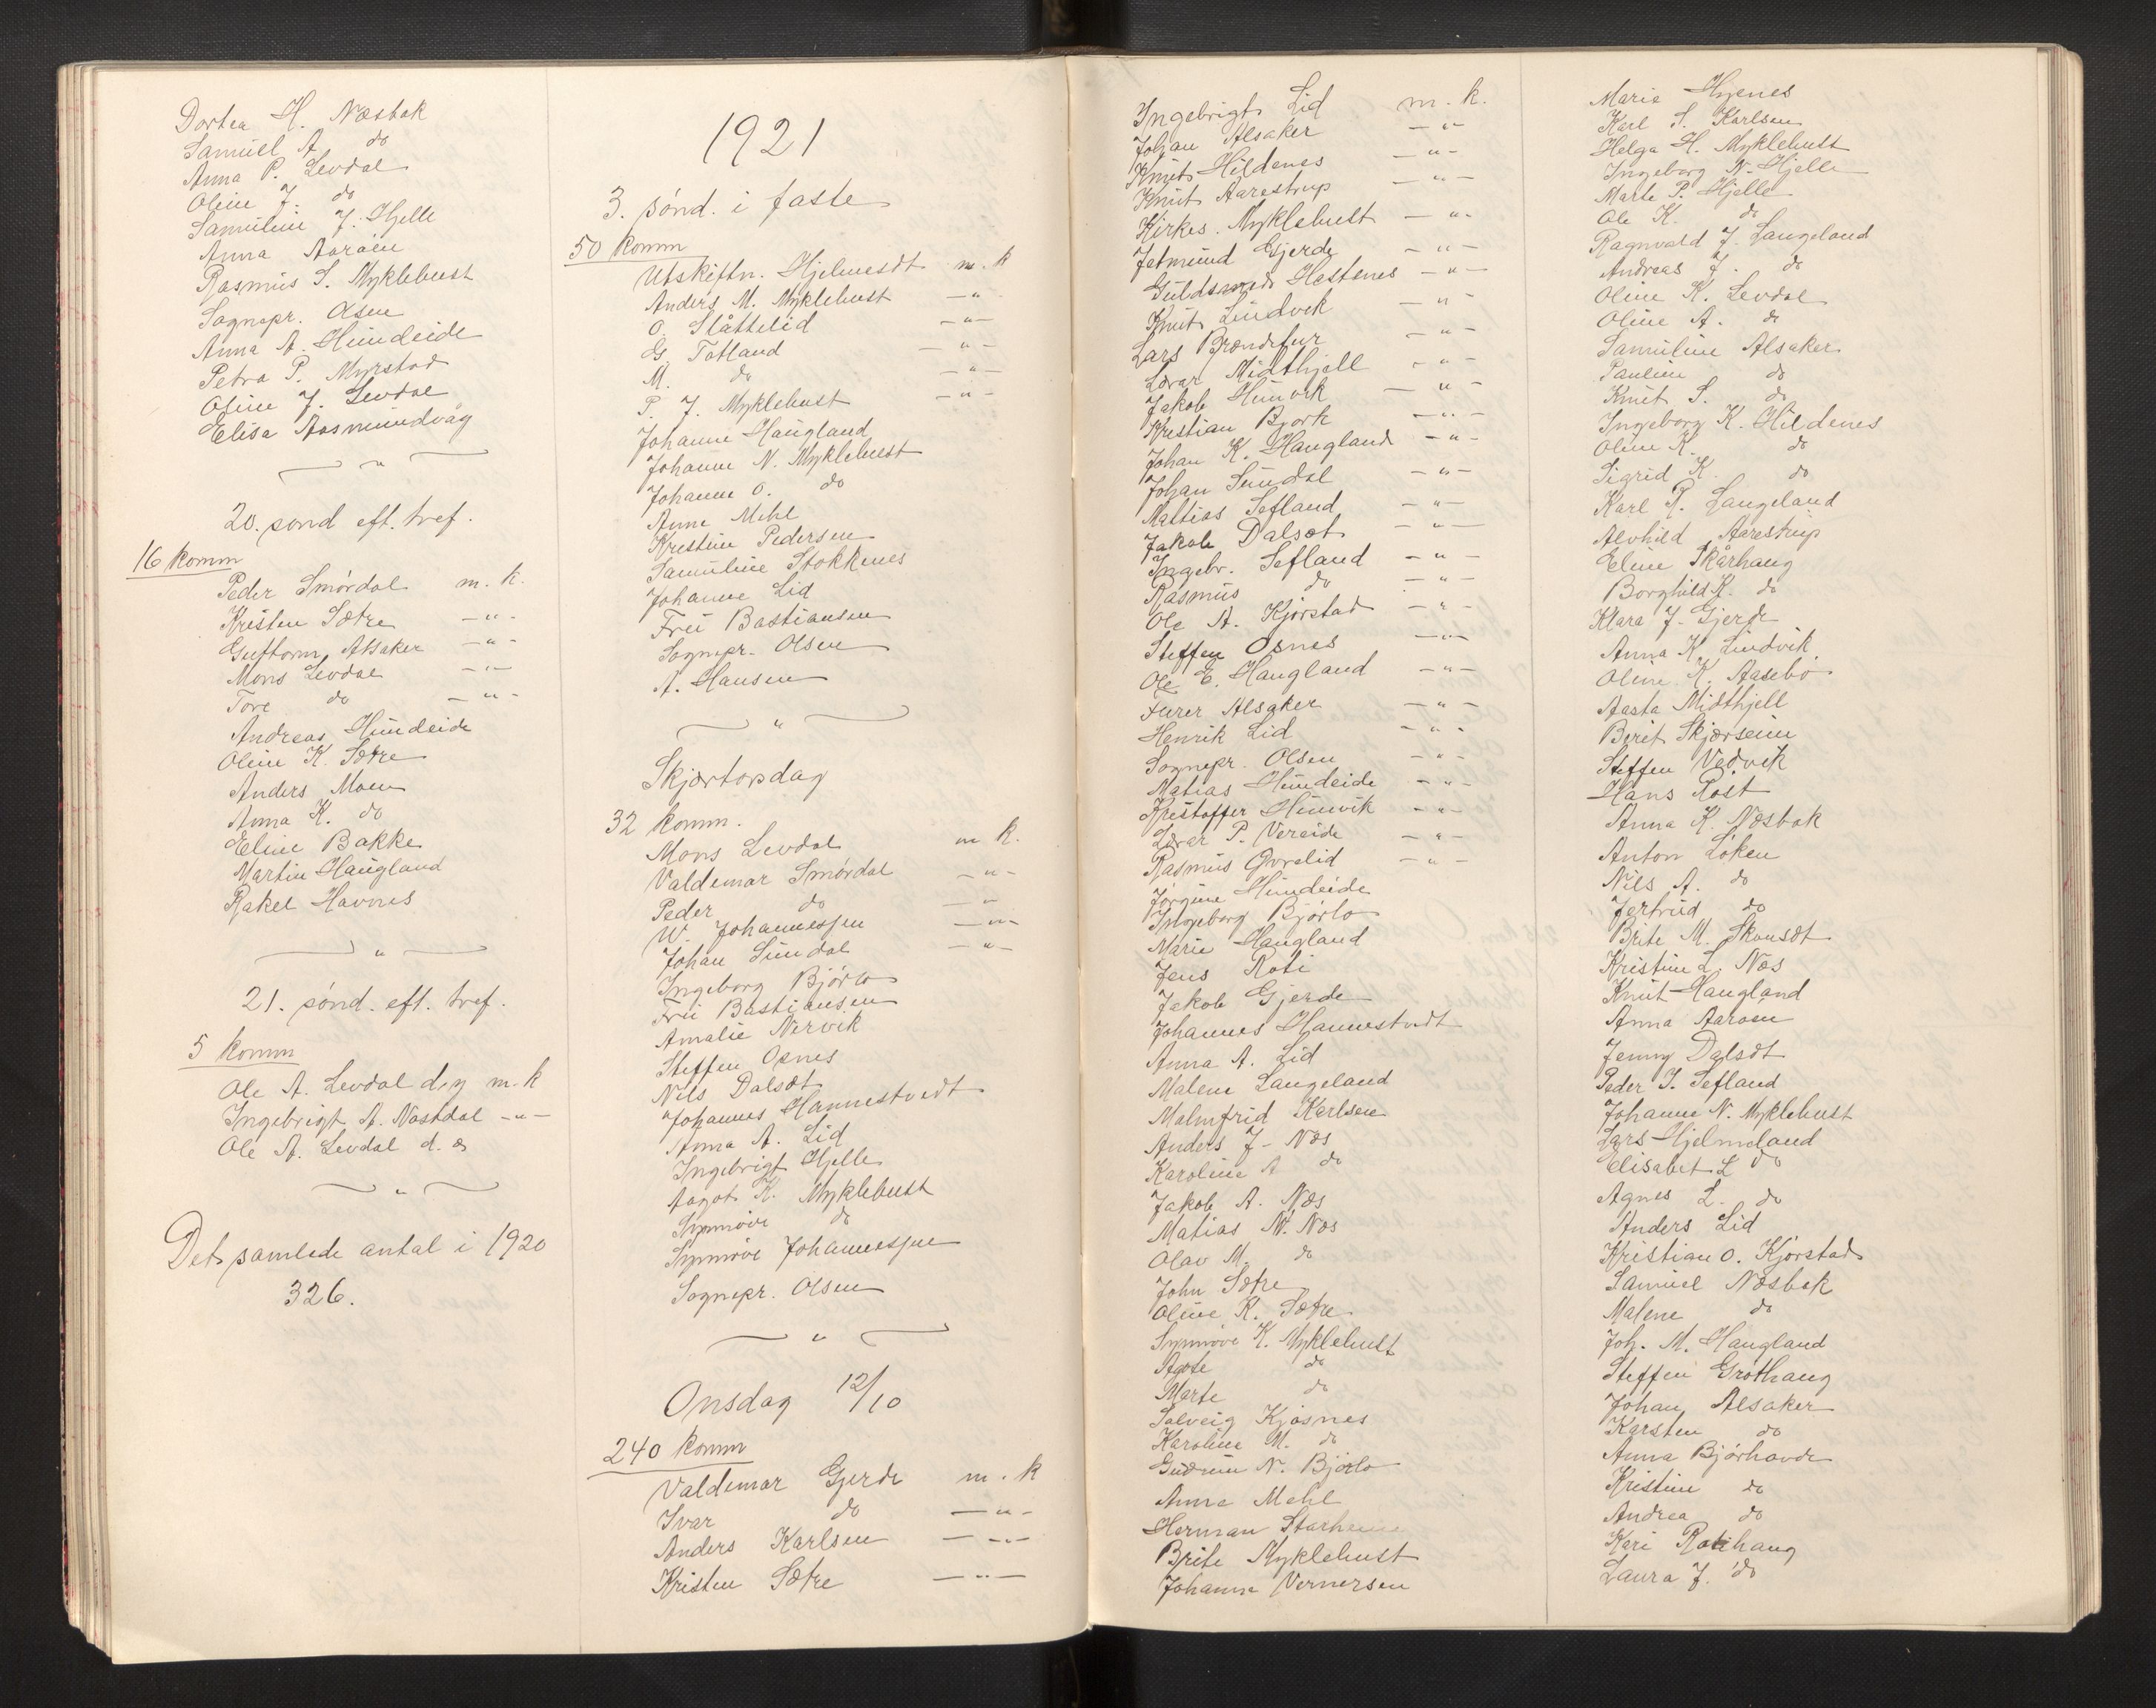 Dortea H. Næsbak
Samuel A do
Anna P. Levdal
Oline J. do
Samuline J. Hjelle
Anna Aarøen
Rasmus S. Myklebust
Sognepr. Olsen
Anna A. Hundeide
Petra P. Myrstad
Oline J. Levdal
Elisa Aasmundvåg
— " —
20. sønd eft. tref.
16 komm
Peder Smørdal m. k.
Kristen Sætre — " —
Guttorm Alsaker — " —
Mons Levdal — " —
Tore do — " —
Andreas Hundeide
Oline K. Sætre
Anders Moen
Anna K. do
Eline Bakke
Martin Haugland
Rakel Havnes
— " —
21. sønd. eft. tref.
5 komm
Ole A. Levdal d.y m. k
Ingebrigt A. Nastdal — " —
Ole A. Levdal d. æ
— " —
Det samlede antal i 1920
326.
1921
3. sønd. i faste
50 komm
Utskiftn. Hjelmesæt m. k
Anders M. Myklebust — "
O. Slåttelid — " —
G. Totland — " —
M. do — " —
P. J. Myklebust — " —
Johanne Haugland
Johanne N. Myklebust
Johanne O. do
Anne Mehl
Kristine Pedersen
Samuline Stokkenes
Johanne Lid
Fru Bastiansen
Sognepr. Olsen
A. Hansen
— " —
Skjærtorsdag
32 komm.
Mons Levdal m k.
Valdemar Smørdal — " —
Peder do — "
W. Johannessen — " —
Johan Sundal — " —
Ingeborg Bjørlo
Fru Bastiansen
Amalie Nervik
Steffen Osnes
Nils Dalsæt
Johannes Hannestvedt
Anna A. Lid
Ingebrigt Hjelle
Aagot K. Myklebust
Synnøve do
Synnøve Johannessen
Sognepr. Olsen
— " —
Onsdag 12/10
240 komm
Valdemar Gjerde m. k
Ivar do — " —
Anders Karlsen — " —
Kristen Sætre — " —
Ingebrigt Lid m. k.
Johan Alsaker — " —
Knut Hildenes — " —
Knut Aarestrup — " —
Kirkes. Myklebust — " —
Jetmund Gjerde — " —
Guldsmed Hestenes — " —
Knut Lindvik — " —
Lars Brændefur — " —
Lærar Midthjell — " —
Jakob Hunvik — " —
Kristian Bjork — " —
Johan K. Haugland — " —
Johan Sundal — " —
Mattias Sefland — " —
Jakob Dalsæt — " —
Ingebr. Sefland — " —
Rasmus do — " —
Ole A. Kjørstad — " —
Steffen Osnes — " —
Ole E. Haugland — " —
Furer Alsaker — " —
Henrik Lid — " —
Sognepr. Olsen — " —
Matias Hundeide — " —
Kristoffer Hunvik — " —
Lærar P. Vereide — " —
Rasmus Øvrelid — " —
Jørgine Hundeide
Ingeborg Bjørlo
Marie Haugland
Jens Roti
Jakob Gjerde
Johannes Hannestvedt
Anna A. Lid
Malene Langeland
Malmfrid Karlsen
Anders J. Næs
Karoline A do
Jakob A. Næs
Matias N. Næs
Olav M. do
John Sætre
Oline K. Sætre
Synnøve K. Myklebust
Agote do
Marte do
Solveig Kjøsnes
Karoline M. do
Gudrun N. Bjørlo
Anne Mehl
Herman Starheim
Brite Myklebust
Johanne Vernersen
Marie Hyenes
Karl S. Karlsen
Helga H. Myklebust
Ingeborg N. Hjelle
Marte P. Hjelle
Ole K. do
Ragnvald J. Langeland
Andreas J. do
Oline K. Levdal
Oline A. do
Samuline Alsaker
Pauline do
Knut S. do
Ingeborg K. Hildenes
Oline K. do
Sigrid K. do
Karl R. Langeland
Alvhild Aarestrup
Eline Skårhaug
Borghild K. do
Klara J. Gjerde
Anna K. Lindvik
Oline K. Aasebø
Aasta Midthjell
Berit Skjerseim
Steffen Vedvik
Hans Rost
Anna K. Næsbak
Anton Løken
Nils A. do
Jertrud do
Brite M. Skonsæt
Kristine L. Næs
Knut Haugland
Anna Aarøen
Jenny Dalsæt
Peder J. Sefland
Johanne N. Myklebust
Lars Hjelmeland
Elisabet L do
Agnes L. do
Anders Lid
Kristian O. Kjørstad
Samuel Næsbak
Malene do
Joh. M. Haugland
Steffen Grøthaug
Johan Alsaker
Karsten do
Anna Bjørhovde
Kristine do
Andrea do
Kari Rotihaug
Laura J. do